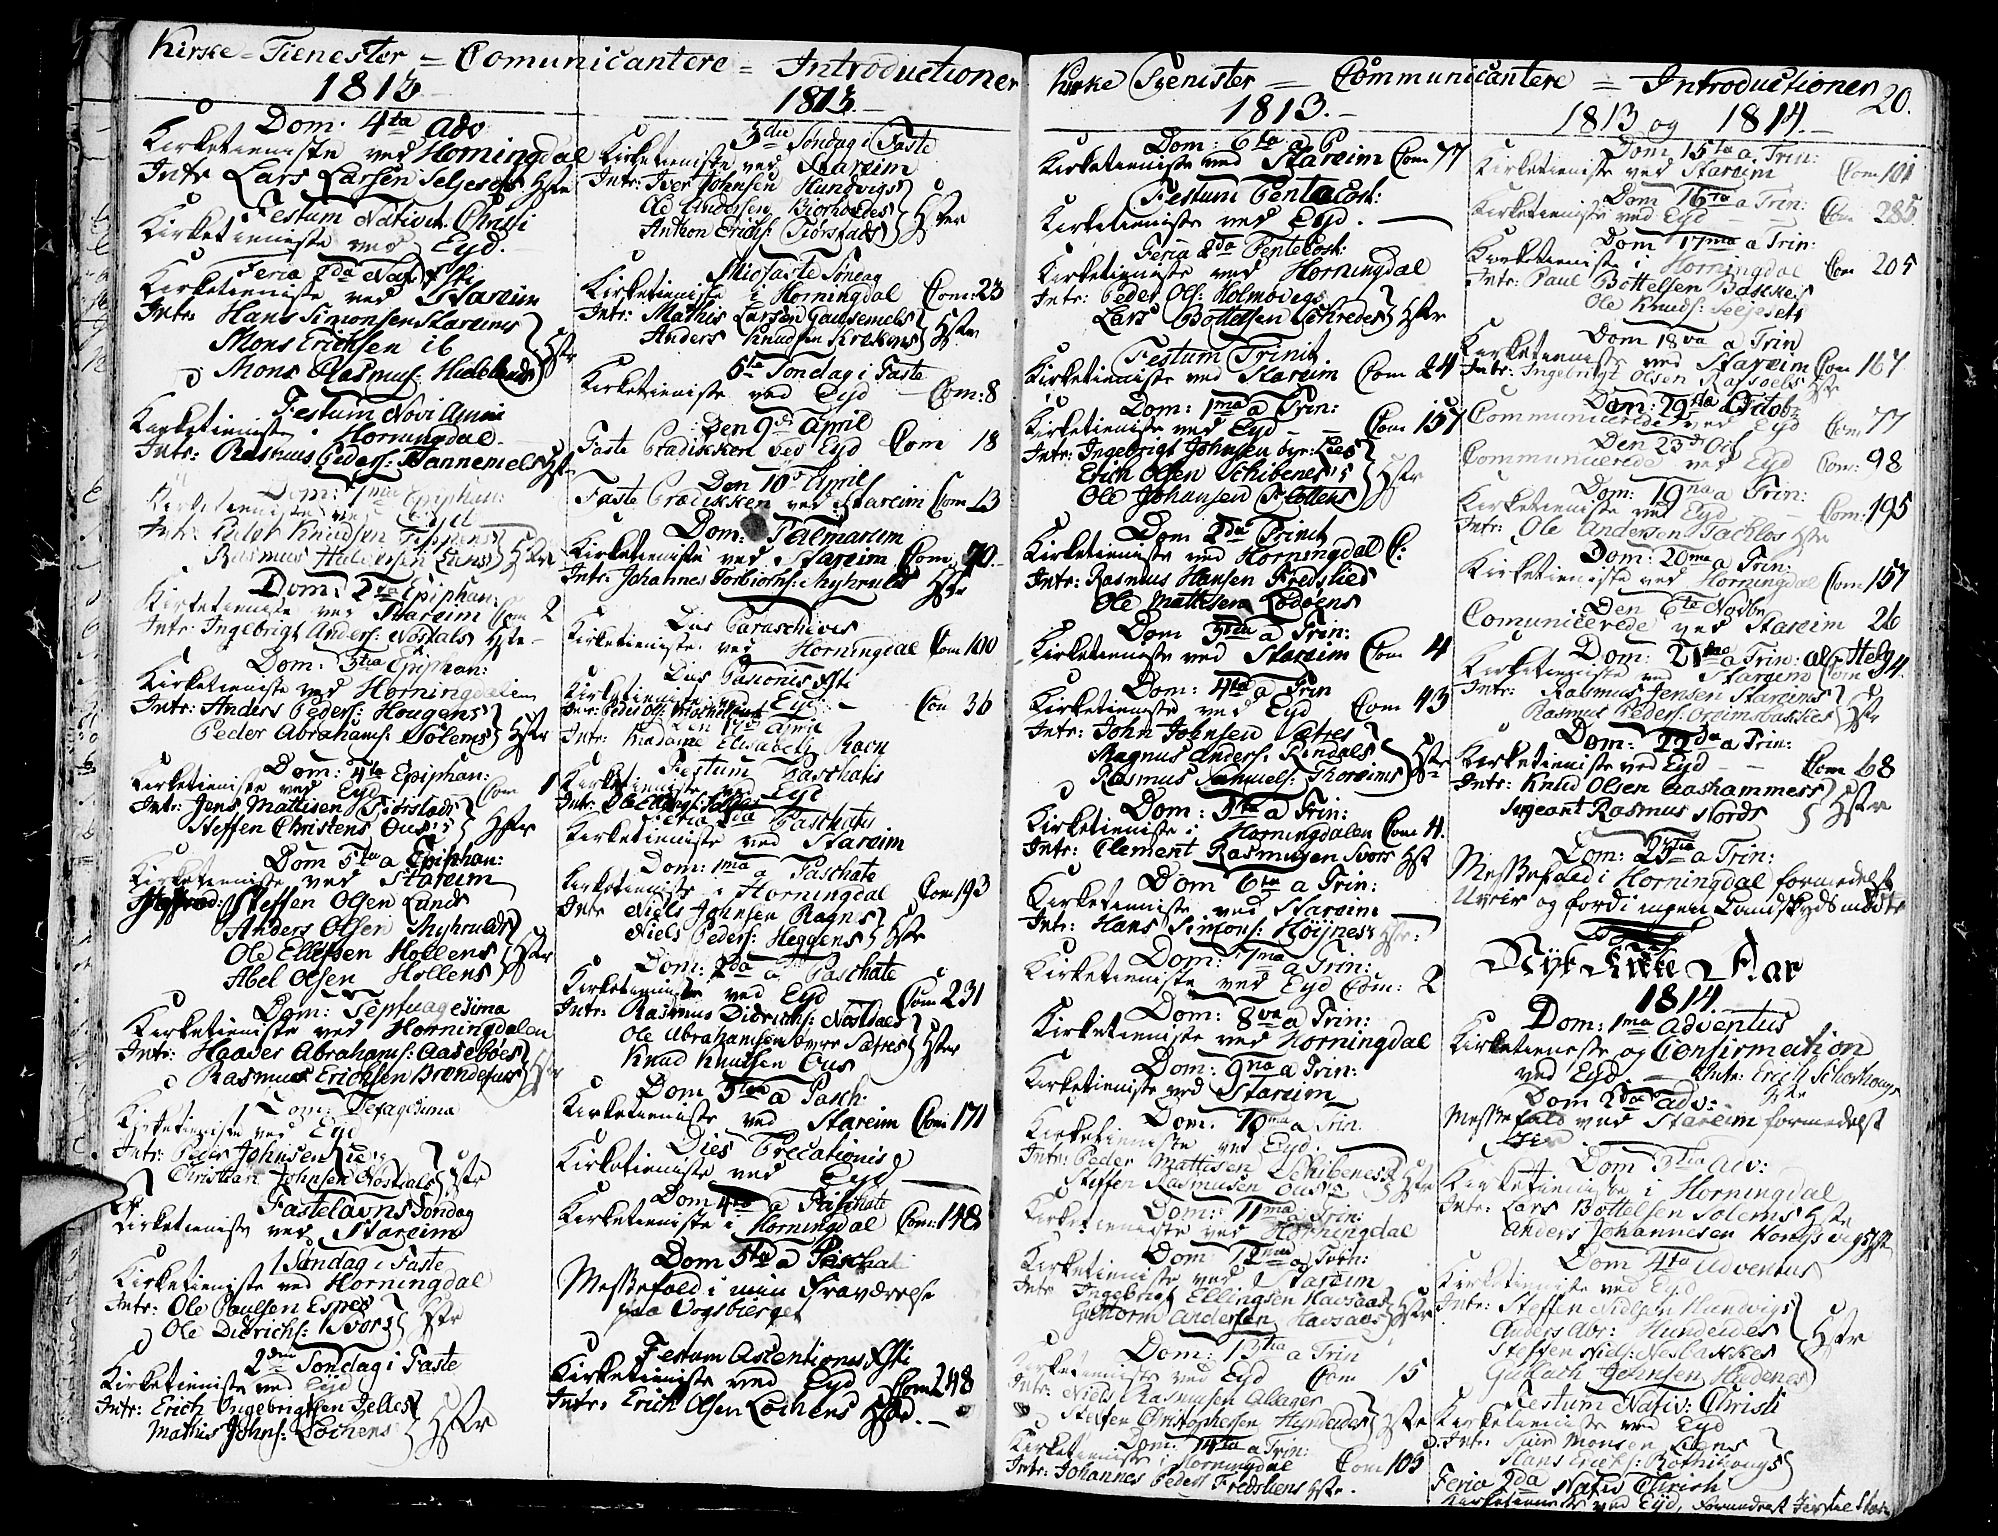 Kirke-Tienester = Comunicantere = Introductioner
1813
Dom: 4ta Adv
Kirketieniste ved Horningdal
Intr Lars Larsen Seljesets Hstr
Festum Nativit. Christi
Kirketieneste ved Eyd.
Feria 2da Nat. Xsti
Kirketieniste ved Stareim
Intr: Hans Simonsen Stareims
Mons Erichsen ib
Mons Rasmus: Hielelands Hstr
Festum Novi Anni
Kirketieniste i Horningdal
Intr: Rasmus Peders: Nannemels Hstr
Dom: 1ma Epiphan:
Kirketieniste ved Eyd
Intr: Peder Knudsen
Rasmus Hstr
Dom: 2da Epiphan:
Kirketieniste ved Stareim Com 2
Intr: Ingebrigt Anders: Nøstdals Hstr
Dom: 3tia Epiphan:
Kirketieniste ved Horningdalen
Intr: Anders Peders: Hougens
Peder Abrahams: Solems Hstr
Dom: 4ta Epiphan:
Kirketieniste ved Eyd Com 1
Intr: Jens Mattisen Siørstads
Steffen Christens Ous Hstr
Dom 5ta a Epiphan:
Kirketieniste ved Stareim
Steffen Olsen Lunds
Anders Olsen Myhrulds
Ole Ellefsen Hollens
Abel Olsen Hollens Hstr
Dom: Septuagesima
Kirketieniste ved Horningdalen
Intr: Haaver Abrahams: Aaseboes
Rasmus Erichsen Brendefurs Hstr
Dom:
Kirketieniste ved Eyd
Intr: Peder Johnsen
Christian Johnsen Nøstdals Hstr
Fastelavns Søndag
Kirketieniste ved Stareim
1 Søndag i Faste
Kirketieniste ved Horningdal
Intr: Ole Paulsen Espes
Ole Didrichs: Svors Hstr
2den Søndag i Faste
Kirketieniste ved Eyd
Intr: Erich Ingebrigtsen
Mathis Johns: Loenens Hstr
1813.
3die Søndag i Faste
Kirketieniste ved Stareim
Intr: Iver Johnsen Hundvigs
Ad Andersen Biørhovdes
Anthon Erichs: Siørstads Hstr
Midfaste Søndag
Kirketieniste i Horningdal Com: 23
Intr: Mathis Larsen Gausemels
Anders Knudsen Krakens Hstr
5te Søndag i Faste
Kirketieniste ved Eyd Com: 8
Den 9de April
Faste Prædikken ved Eyd Com 18
Den 10de April
Faste Prædikken ved Stareim Com 13
Dom: Palmarum
Kirketieniste ved Stareim Com 70
Intr: Johannes Torbiørns: Myhrulds Hstr
Dies Parasceves
Kirketieniste ved Horningdal Com 100
Dies Pasionis Xsti
Kirketieniste ved Eyd Com 36
Intr: Peder Ols:
Den April
Intr: Madame Elisabeth Ravn
Festum Paschatis
Kirketieniste ved Eyd
Intr: Ole
Feria 2da Paschatis
Kirketieniste ved Stareim
Dom: 1ma a Paschate
Kirketieniste i Horningdal Com 193
Intr Niels Johnsen Ragns
Niels Peders: Heggens Hstr
Dom: 2da a Paschate
Kirketieniste ved Eyd Com 231
Intr: Rasmus Didrichs: Nøstdals
Ole Abrahamsen øvre Sætres
Knud Knudsen Ous Hstr
Dom 3tia a Pasch:
Kirketieniste ved Stareim Com 171
Dies Precationis
Kirketieniste ved Eyd
Dom 4ta a Paschate
Kirketieniste i Horningdal Com: 148
Dom 5ta a Paschati
Messefald i min Fraværelse
paa Vogsberget
Festum Ascentionis Xsti
Kirketieniste ved Eyd Com 248
Intr: Erich Olsen Loenens Hstr.
Kirke Tienister = Communicantere = Introductioner 20.
1813.
Dom: 6ta a P
Kirketieniste ved Stareim Com 77
Festum Pentacost:
Kirketieniste ved Eyd.
Feria 2da Pentecost:
Kirketieniste ved Horningdal
Intr: Peder Ols: Holmøvigs
Lars Bottelsen Schredes Hstr
Festum Trinit.
Kirketieniste ved Stareim Com 24
Dom: 1ma a Trin:
Kirketieniste ved Eyd Com 157
Intr: Ingebrigt Johnsen
Erich Olsen Schibenes
Ole Johansen Hollens Hstr
Dom 2da Trinit
Kirketieniste ved Horningdal C:
Intr: Rasmus Hansen Fredslied
Ole Mattisen Lødøens
Dom 3tia a Trin:
Kirketieniste ved Stareim Com 4
Dom: 4ta a Trin
Kirketieniste ved Eyd Com 43
Intr: John Johnsen Sætres
Magnus Anders: Rindals
Rasmus Samuels: Thoreims Hstr
Dom: 5ta a Trin:
Kirketieniste i Horningdalen Com 4.
Intr: Clement Rasmusen Svors Hst
Dom 6ta a Trin:
Kirketieniste ved Stareim
Intr: Hans Simons: Høynes Hstr:
Dom: 7ma a Trin:
Kirketieniste ved Eyd Com: 2
Dom: 8va a Trin:
Kirketieniste ved Horningdal
Dom: 9na a Trin:
Kirketieniste ved Stareim
Dom: 10ma a Trin:
Kirketieniste ved Eyd.
Intr: Peder Mattisen Schibenes
Steffen Rasmusen Ous Hstr
Dom: 11ma a Trin:
Kirketieniste ved Horningdal
Dom 12ma a Trin:
Kirketieniste ved Stareim
Intr Ingebrigt Ellingsen Havsaas
Guttorm Andersen Havsaas Hstr
Dom: 13tia a Trin
Kirketieniste ved Eyd Com 15
Intr: Niels Rasmusen Aldages
Steffen Christophersen Hundeides Hstr
Dom: 14ta a Trin:
Kirketieniste i Horningdal Com 105
Intr: Johannes Peders Fredsliens Hstr.
1813 og 1814.
Dom 15ta a Trin:
Kirketieniste ved Stareim Com 101
Dom 16ta a Trin:
Kirketieniste ved Eyd Com 285
Dom 17ma a Trin:
Kirketieniste i Horningdal Com 205
Intr: Paul Bottelsen Bakkes
Ole Knuds: Seljesets
Dom 18va a Trin
Kirketieniste ved Stareim Com 167
Intr: Ingebrigt Olsen Hstr
Den: Octob:
Communicerede ved Eyd Com 77
Den 23de Oct
Communicerede ved Eyd Com: 98
Dom: 19na a Trin:
Kirketieniste ved Eyd Com: 195
Intr: Ole Andersen Tachlos Hstr
Dom: 20ma a Trin:
Kirketieniste ved Horningdal Com 157
Den 6te Novbr
Comunicerede ved Stareim 26
Dom: 21ma a Trin: al: Helg
Kirketieniste ved Stareim Com 94.
Intr: Rasmus Jensen Stareims
Rasmus Peders: Oreimsbakkes Hstr
Dom: 22da a Trin:
Kirketieniste ved Eyd Com 68
Intr: Knud Olsen Aashammers
Sergeant Rasmus Nords Hstr
Dom: 23tia a Trin:
Messefald i Horningdal formedelst
Uveir og fordi ingen Landskyds mødte
Nyt Kirke Aar
1814.
Dom: 1ma Adventus
Kirketieneste og Confirmation
ved Eyd Intr: Erich
Dom 2da Adv:
Messefald ved Stareim formedelst
Dom 3tia Adv:
Kirketieniste i Horningdal
Intr: Lars Bottelsen Solems Hstr
Anders Johannesen Hongsvigs Hst
Dom 4ta Adventus
Kirketieniste ved Eyd
Intr: Steffen Nielsen Hundvigs
Anders Abr: Hundeides
Steffen Niels: Nesbakkes
Gullach Johnsen Hundenes Hstr
Festum Nativ: Christi
Kirketieniste ved Eyd
Intr: Siur Monsen
Hans Erichs:
Feria 2da Nativ Christi
Kirketieniste ved Eyd,